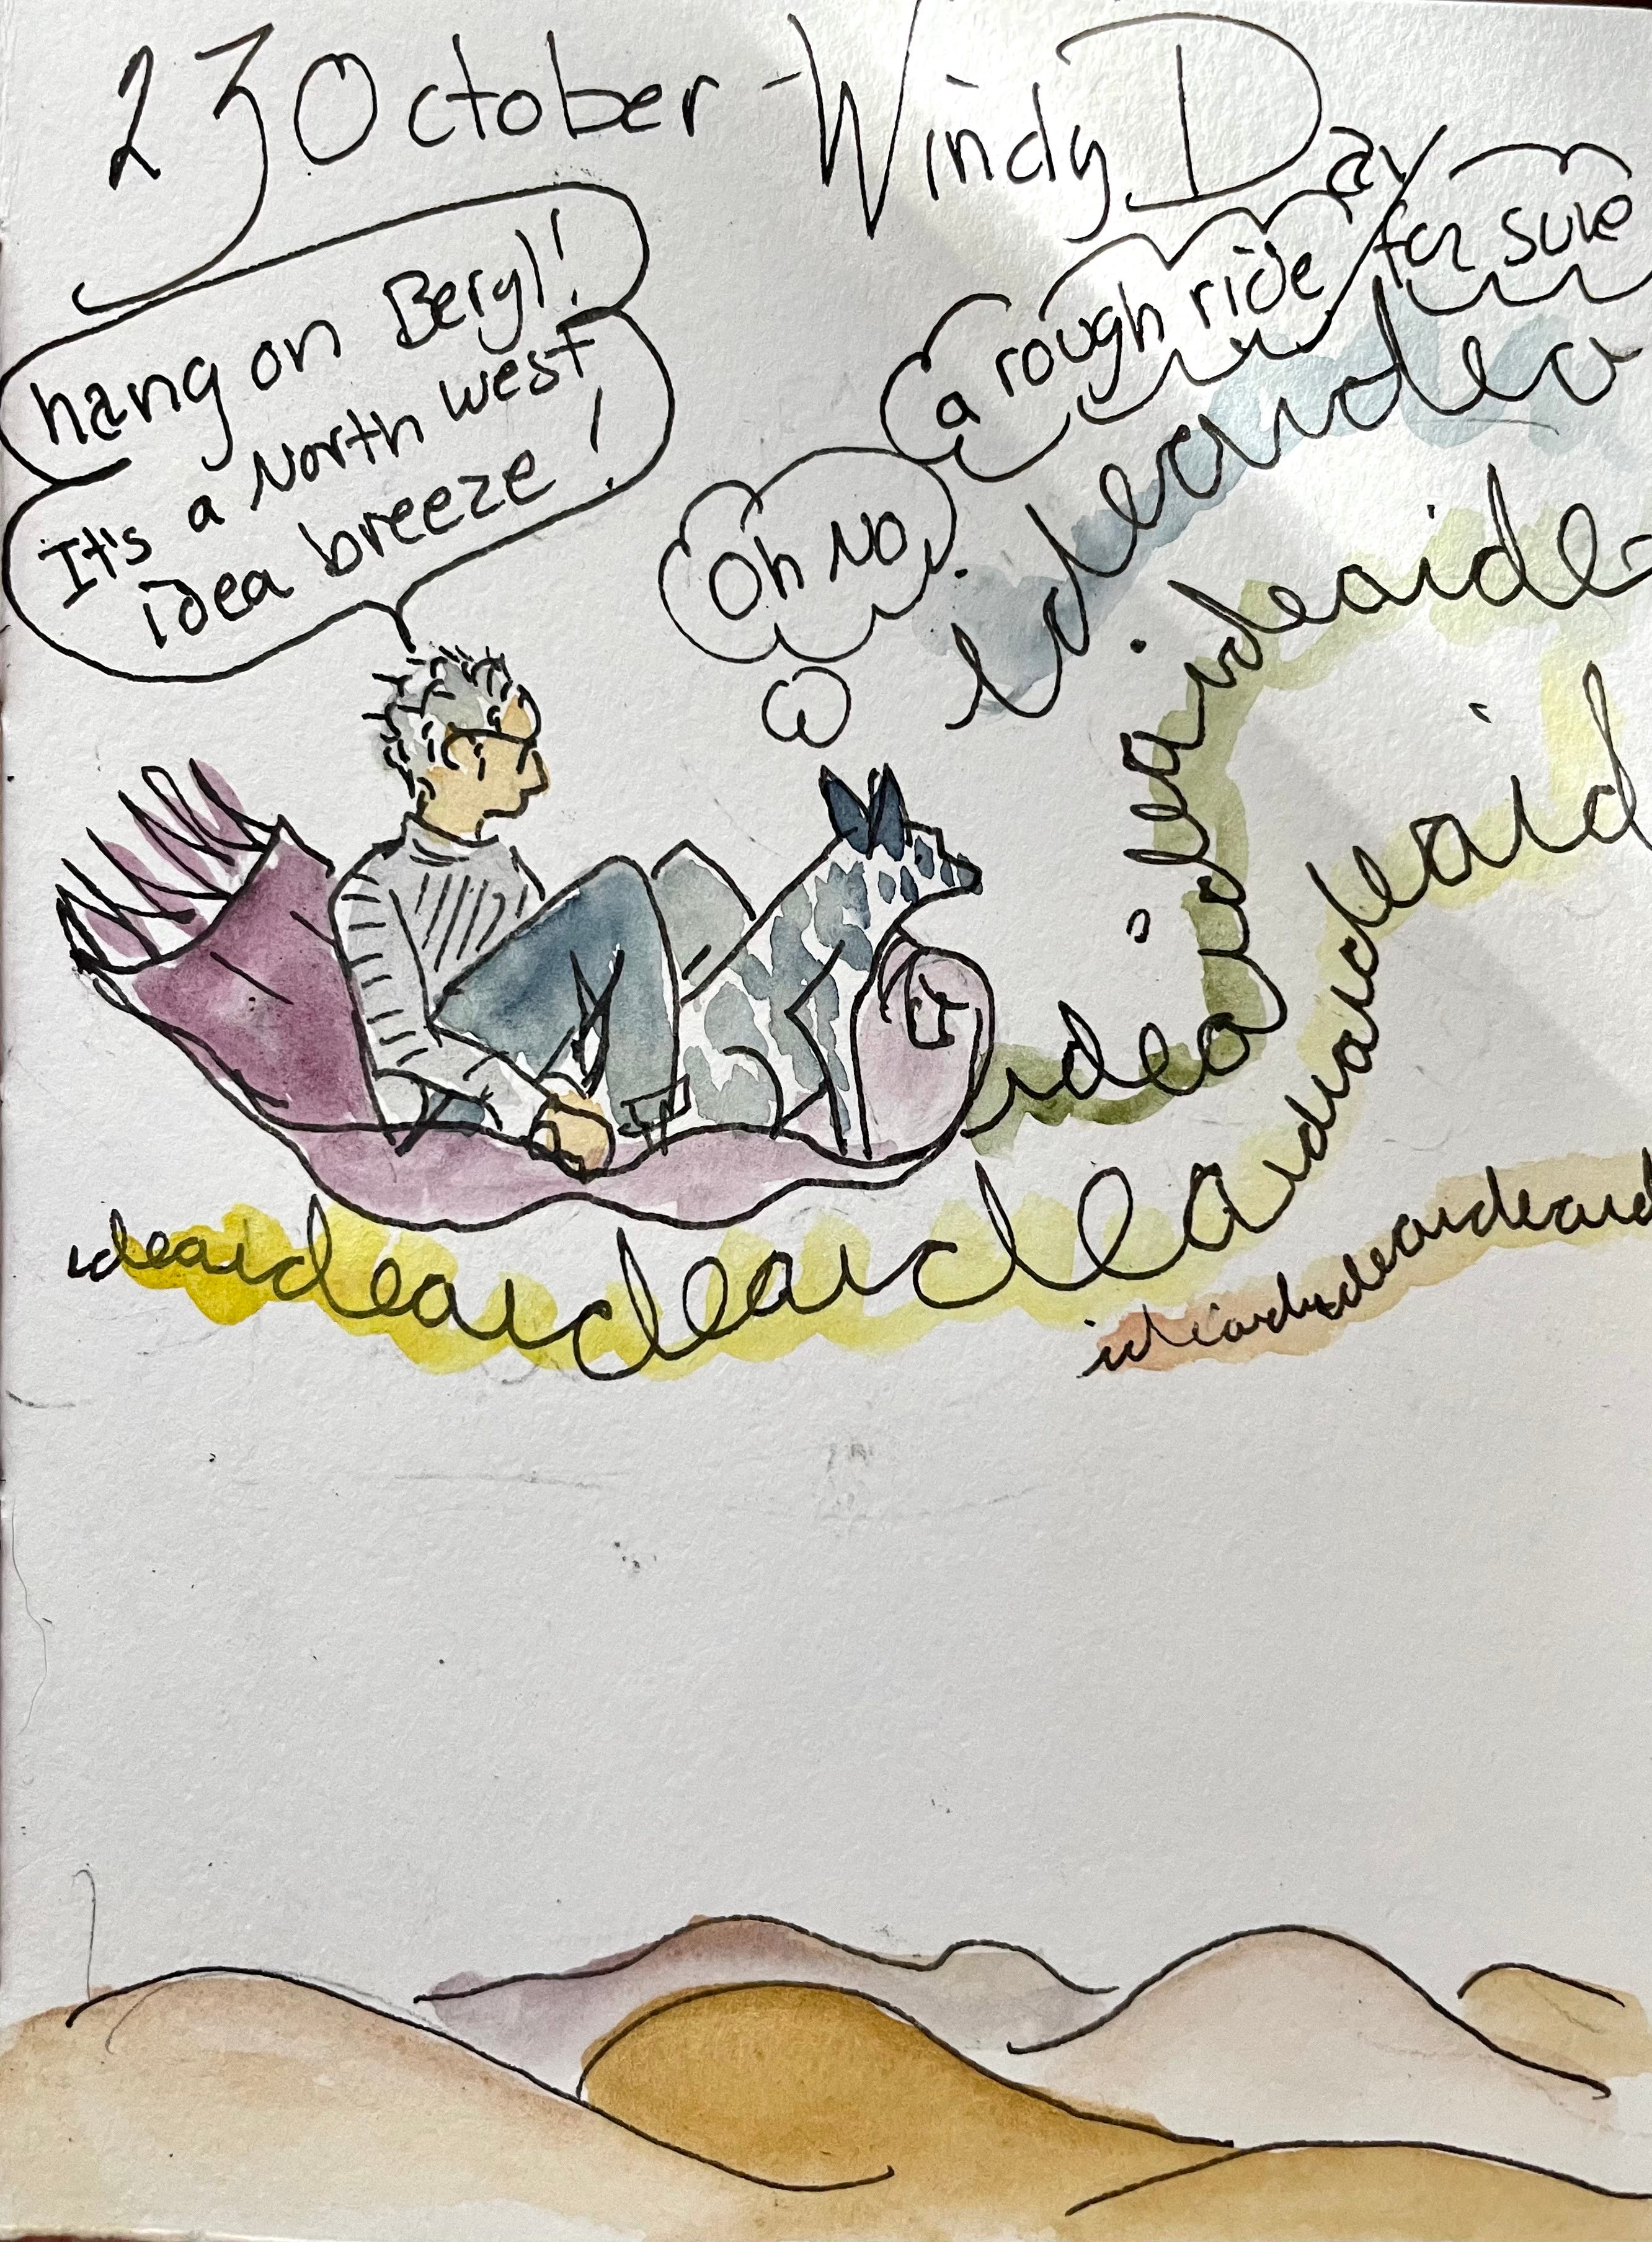 23 October - Windy Day
hang on Beryl!
It's a North west
idea breeze!
Oh no
a rough ride for sure
ideaidea
ideaideaideaide
ideaideaideaideaideaid
ideaideaideaideaid